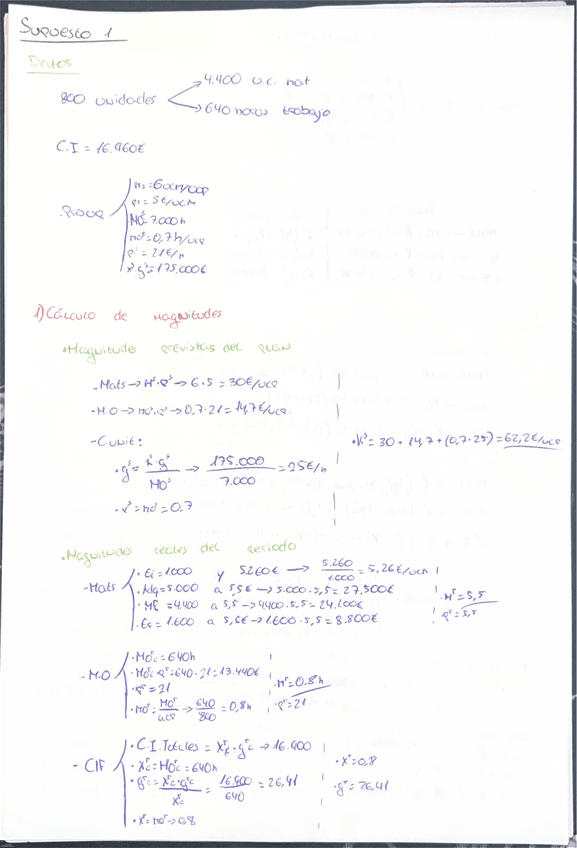 Supuesto 1
Datos
800 unidades
4.400 u.c. mat
640 horas trabajo
C.I = 16.960€
m³ = 6ucm/ucp
p³ = 5€/ucm
MO³ = 7.000h
mo³ = 0,7h/ucp
p³ = 21€/h
x³g³ = 175.000€
1) Cálculo de magnitudes
• Magnitudes previstas del plan
- Mats → M³·P³ → 6·5 = 30€/ucp
- M.O → mo³·p³ → 0,7·21 = 14,7€/ucp.
- C unit:
• K³ = 30 + 14,7 + (0,7·25) = 62,2€/ucp
• g³ = x³·g³ / MO³ → 175.000 / 7.000 = 25€/h
• x³ = mo³ = 0,7
• Magnitudes reales del periodo
- Mats
• Ei = 1.000 y 5.260€ → 5.260 / 1.000 = 5,26€/ucm
• Adq = 5.000 a 5,5€ → 5.000·5,5 = 27.500€
• = 4.400 a 5,5 → 4400·5,5 = 24.200€
• = 1.600 a 5,5€ → 1.600·5,5 = 8.800€
• Mʳ = 5,5
• Pʳ = 5,5
- M.O
• MOʳc = 640h
• MOʳc·Pʳ = 640·21 = 13.440€
• Pʳ = 21
• moʳ = MOʳ / u.cp → 640 / 800 = 0,8h
• Mʳ = 0,8h
• Pʳ = 21
- CIF
• C.I. Totales = Xʳc·gʳc → 16.900
• Xʳc = MOʳc = 640h
• gʳc = Xʳc·gʳc / Xʳc = 16.900 / 640 = 26,41
• Xʳ = moʳ → 0,8
• Xʳ = 0,8
• gʳ = 26,41